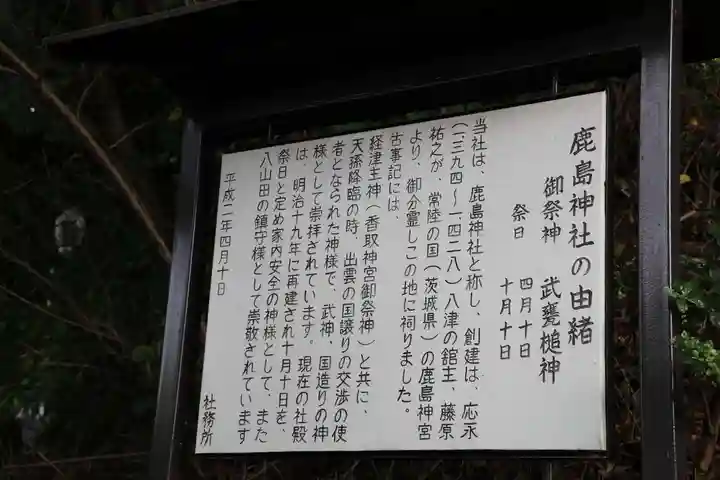 鹿島神社の由緒
御祭神　武甕槌神
祭日　四月十日
十月十日
当社は、鹿島神社と称し、創建は、応永
(一三九四〜一四二八)八津の舘主、藤原
祐之が、常陸の国(茨城県)の鹿島神宮
より、御分霊しこの地に祠りました。
古事記には、
経津主神(香取神宮御祭神)と共に、
天孫降臨の時、出雲の国譲りの交渉の使
者となられた神様で、武神、国造りの神
様として崇拝されています。現在の社殿
は、明治十九年に再建され十月十日を、
祭日と定め家内安全の神様として、また
八山田の鎮守様として崇敬されています
平成二年四月十日
社務所